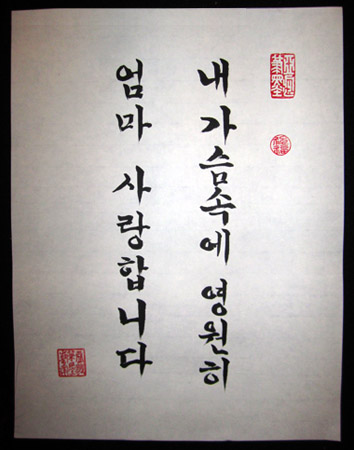 내 가슴속에 영원히
엄마 사랑합니다